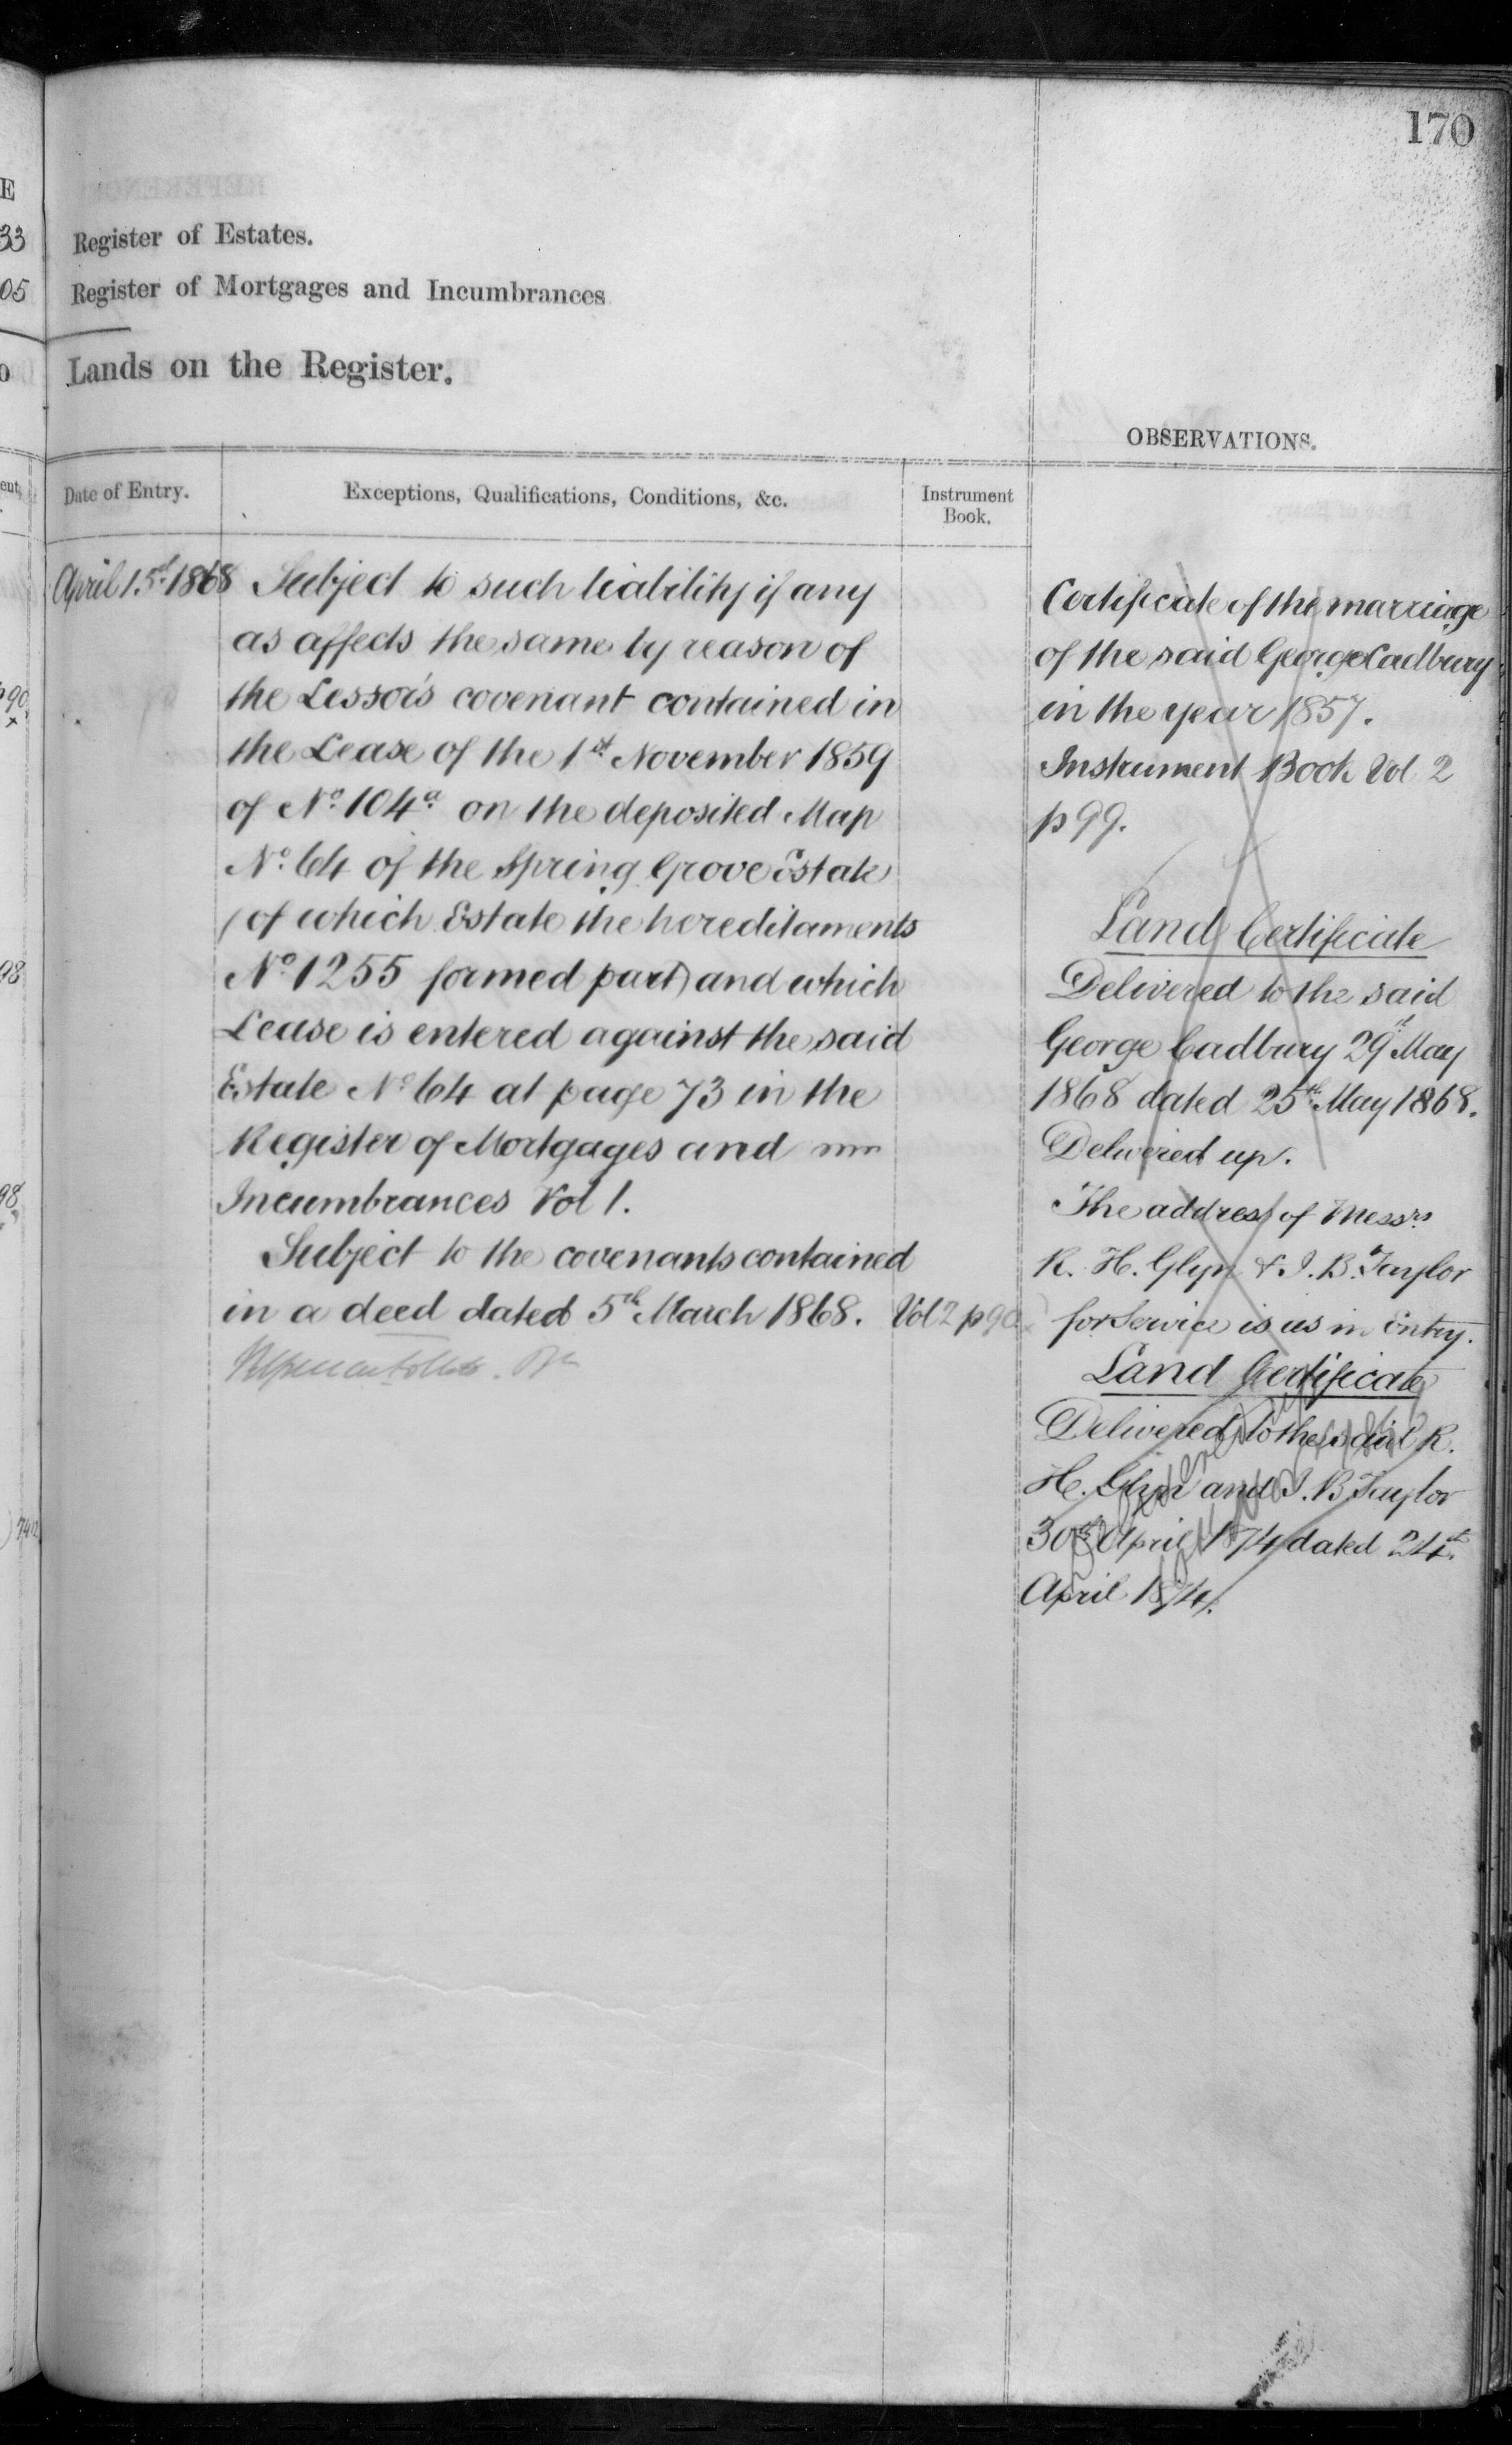 170
E
33
05
Register of Estates.
Register of Mortgages and Incumbrances
Lands on the Register.
OBSERVATIONS.
Date of Entry.
Exceptions, Qualifications, Conditions, &c.
Instrument
Book.
April 1.st 1868
Subject to such liability if any
as affects the same by reason of
the Lessor's covenant contained in
the Lease of the 1st November 1859
of No. 104a on the deposited Map
No. 64 of the Spring Grove Estate
(of which Estate the hereditaments
No. 1255 formed part) and which
Lease is entered against the said
Estate No. 64 at page 73 in the
Register of Mortgages and
Incumbrances Vol 1.
Subject to the covenants contained
in a deed dated 5th March 1868. Vol 2 p 90
Certificate of the marriage
of the said George Cadbury
in the year 1857.
Instrument Book Vol 2
p 99.
Land Certificate
Delivered to the said
George Cadbury 29th May
1868 dated 25th May 1868.
Delivered up.
The address of Messrs
R. H. Glyn & I. B. Taylor
for Service is as in Entry.
Land Certificate
Delivered to the said R.
H. Glyn and I. B. Taylor
30th April 1874 dated 24th
April 1874.